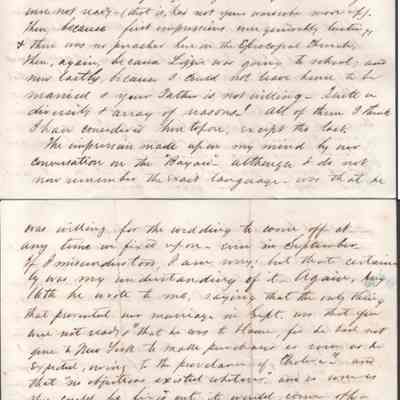 were not ready - (that is, had not your wardrobe made up).
Then, because first impressions were generally lasting,
& there was no preacher here in the Episcopal Church,
then, again, because Lizzie was going to school, and
now lastly, because I could not leave home to be
married & your Father is not willing. Quite a
diversity & array of reasons! All of them I think
I have considered heretofore, except the last.
The impression made upon my mind by our
conversation on the "Bayou" although I do not
now remember the exact language - was that he
was willing for the wedding to come off at
any time we fixed upon - even in September.
If I misunderstood, I am sorry; but that certain
ly was my understanding of it. Again, Aug
16th he wrote to me, saying that the only thing
that prevented our marriage in Sept. was that you
were not ready & "that he was to blame, for he had not
gone to New York to make purchases as soon as he
expected, owing to the prevalence of Cholera" and
that "no objections existed whatever" and as soon as
he could be fixed out, it would come off -